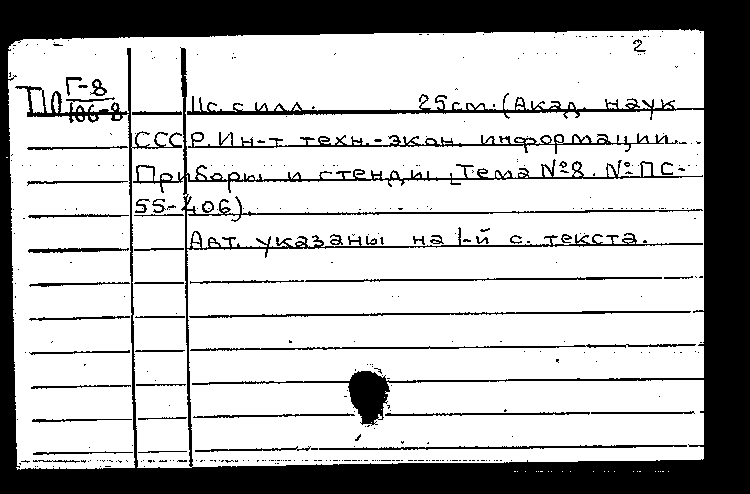 2
ПО Г-8
106-8
11с. с илл. 25см. (Акад. наук
СССР. Ин-т техн.-экон. информации.
Приборы и стенды. Тема №8. № ПС-
55-406).
Авт. указаны на 1-й с. текста.